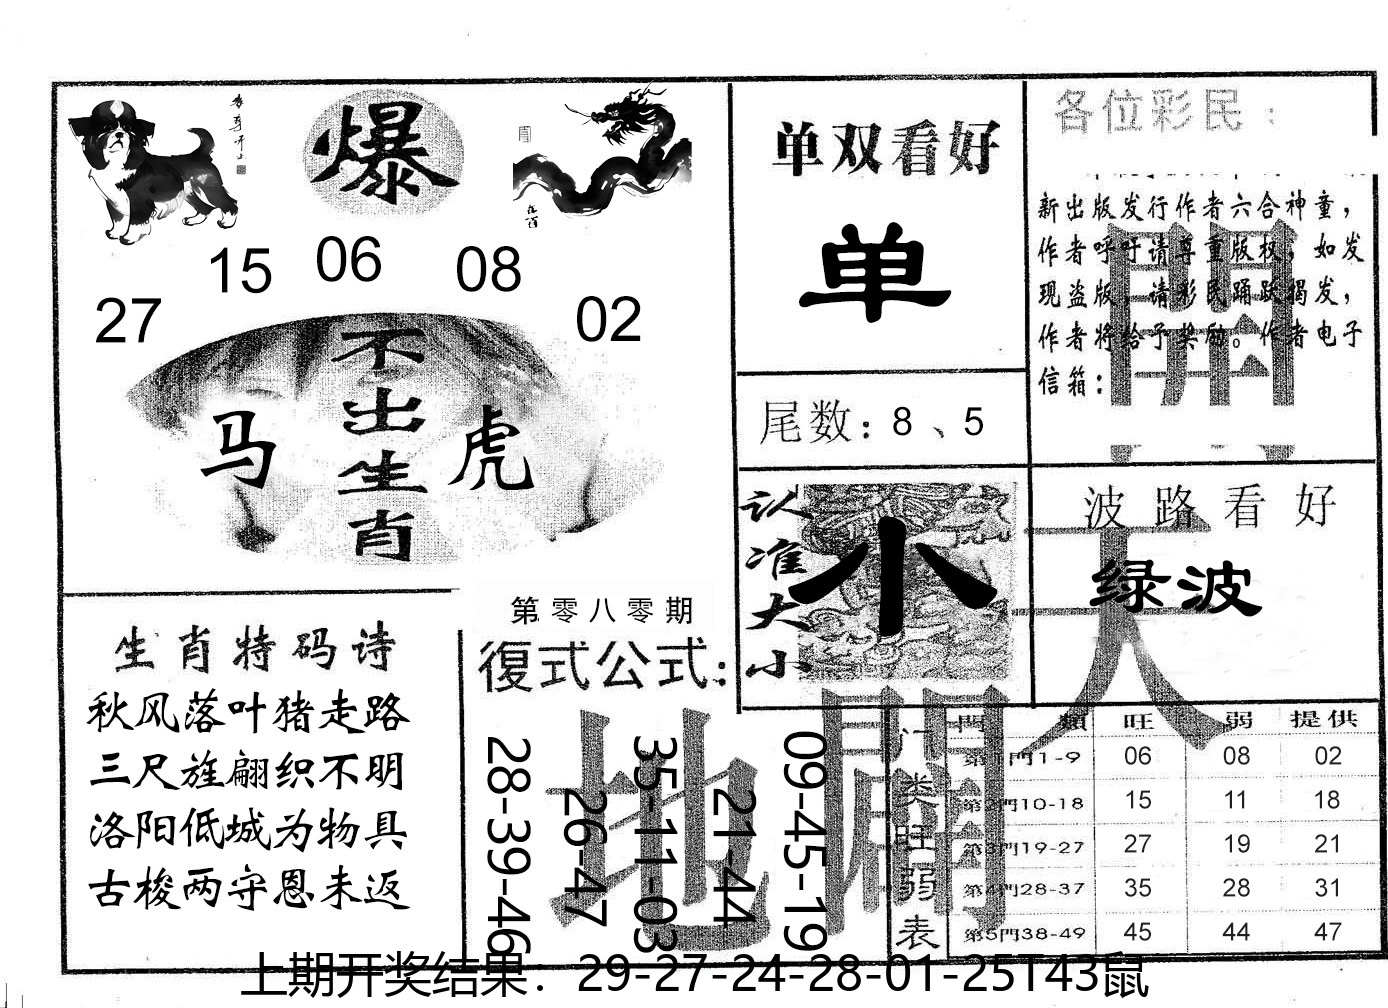 爆
15 06 08
27 02
不出生肖
马 虎
生肖特码诗
秋风落叶猪走路
三尺旌翩织不明
洛阳低城为物具
古梭两守恩未返
第零八零期
復式公式:
28-39-46
26-47
35-11-03
21-44
09-45-19
单双看好
单
尾数: 8 、5
认准大小
小
各位彩民:
新出版发行作者六合神童，
作者呼吁请尊重版权，如发
现盗版，请彩民踊跃揭发，
作者将给予奖励。作者电子
信箱:
波路看好
绿波
天
地
開
门类旺弱表
門 類 旺 弱 提供
第1門1-9 06 08 02
第2門10-18 15 11 18
第3門19-27 27 19 21
第4門28-37 35 28 31
第5門38-49 45 44 47
上期开奖结果：29-27-24-28-01-25T43鼠